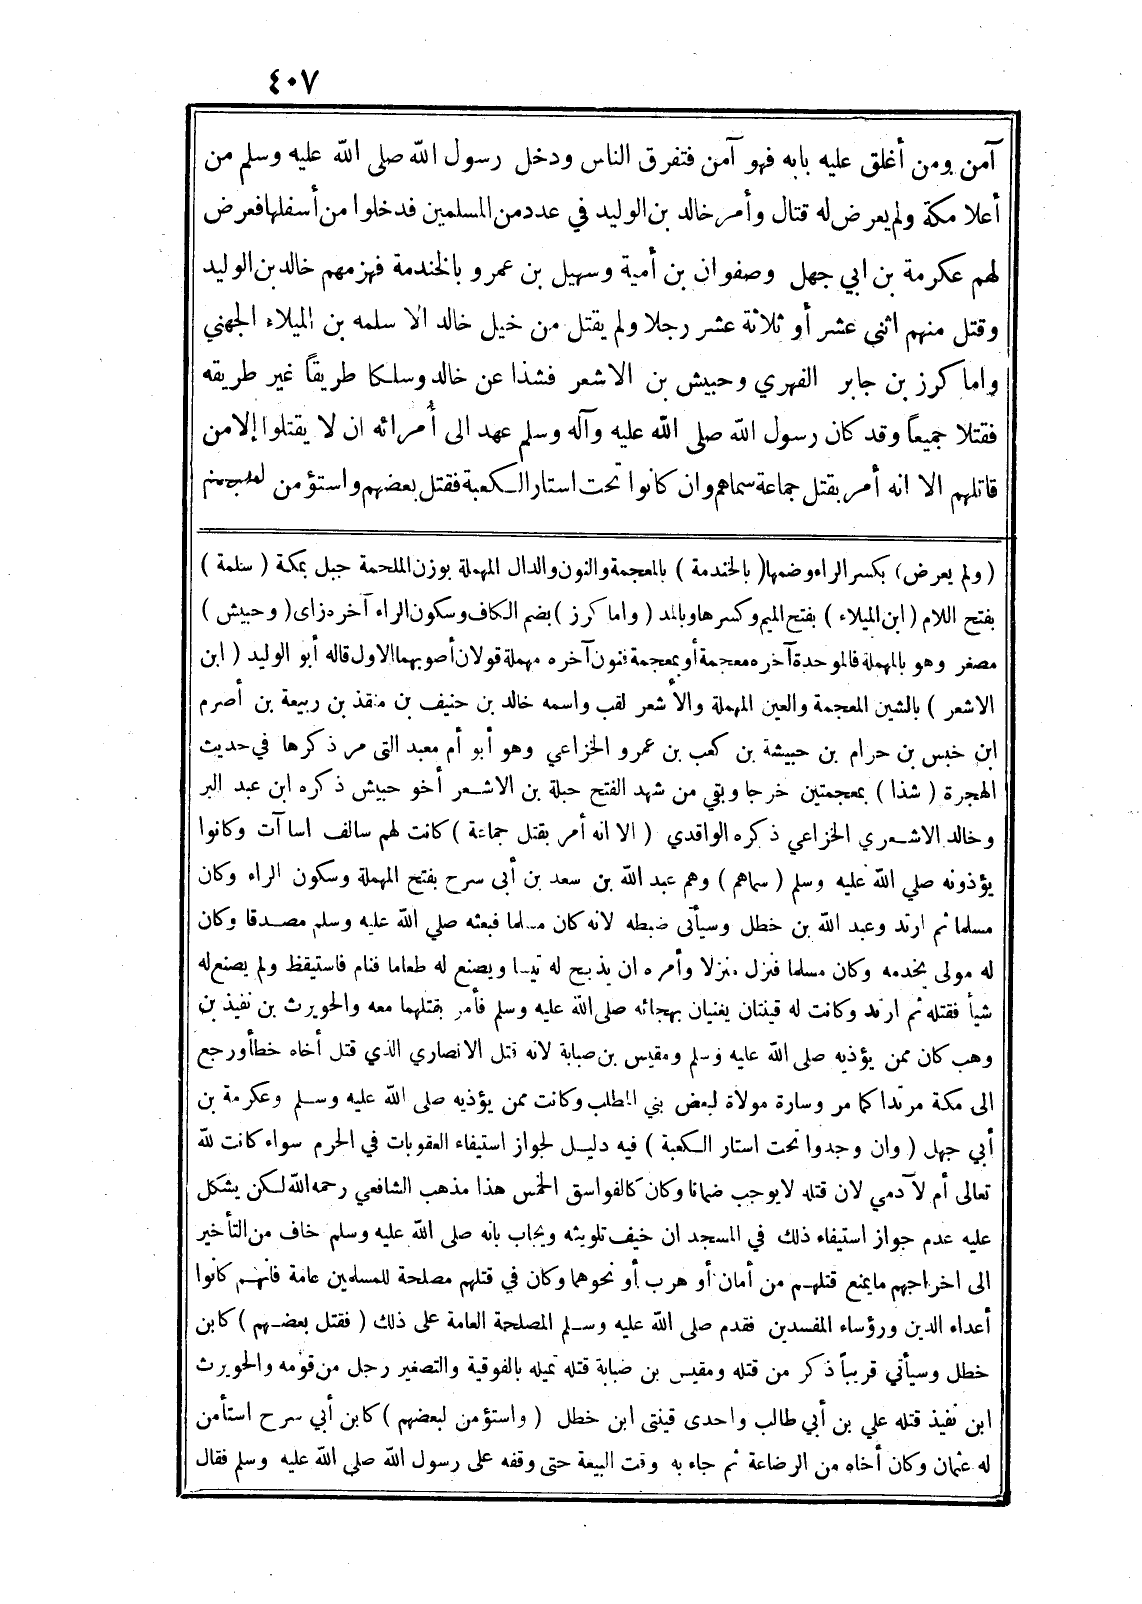 ٤٠٧
آمن ومن أغلق عليه بابه فهو آمن فتفرق الناس ودخل رسول الله صلى الله عليه وسلم من
أعلا مكة ولم يعرض له قتال وأمر خالد بن الوليد في عدد من المسلمين فدخلوا من أسفلها فعرض
لهم عكرمة بن ابي جهل وصفوان بن أمية وسهيل بن عمرو بالخندمة فهزمهم خالد بن الوليد
وقتل منهم اثنى عشر أو ثلاثة عشر رجلا ولم يقتل من خيل خالد الا سلمه بن الميلاء الجهني
واما كرز بن جابر الفهري وحبيش بن الاشعر فشذا عن خالد وسلكا طريقاً غير طريقه
فقتلا جميعاً وقد كان رسول الله صلى الله عليه وآله وسلم عهد الى أمرائه ان لا يقتلوا إلا من
قاتلهم الا انه أمر بقتل جماعة سماهم وان كانوا تحت استار الكعبة فقتل بعضهم واستؤمن لبعضهم
(ولم يعرض) بكسر الراء وضمها (بالخندمة) بالمعجمة والنون والدال المهملة بوزن الملحمة جبل بمكة (سلمة)
بفتح اللام (ابن الميلاء) بفتح الميم وكسرها وبالمد (واما كرز) بضم الكاف وسكون الراء آخره زاى (وحبيش)
مصغر وهو بالمهملة فالموحدة آخره معجمة أو بمعجمة فنون آخره مهملة قولان أصوبهما الاول قاله أبو الوليد (ابن
الاشعر) بالشين المعجمة والعين المهملة والأشعر لقب واسمه خالد بن حنيف بن منقذ بن ربيعة بن أصرم
ابن خبس بن حرام بن حبيشة بن كعب بن عمرو الخزاعي وهو أبو أم معبد التى مر ذكرها في حديث
الهجرة (شذا) بمعجمتين خرجا وبقي من شهد الفتح حبلة بن الاشعر أخو حبيش ذكره ابن عبد البر
وخالد الاشعري الخزاعي ذكره الواقدي (الا انه أمر بقتل جماعة) كانت لهم سالف اساآت وكانوا
يؤذونه صلي الله عليه وسلم (سماهم) وهم عبد الله بن سعد بن أبى سرح بفتح المهملة وسكون الراء وكان
مسلما ثم ارتد وعبد الله بن خطل وسيأتى ضبطه لانه كان مسلما فبعثه صلي الله عليه وسلم مصدقا وكان
له مولى يخدمه وكان مسلما فنزل منزلا وأمره ان يذبح له تيسا ويصنع له طعاما فنام فاستيقظ ولم يصنع له
شيأ فقتله ثم ارتد وكانت له قينتان يغنيان بهجائه صلى الله عليه وسلم فأمر بقتلهما معه والحويرث بن نفيذ بن
وهب كان ممن يؤذيه صلى الله عليه وسلم ومقيس بن صبابة لانه قتل الانصاري الذي قتل أخاه خطأ ورجع
الى مكة مرتدا كما مر وسارة مولاة لبعض بني المطلب وكانت ممن يؤذيه صلى الله عليه وسلم وعكرمة بن
أبي جهل (وان وجدوا تحت استار الكعبة) فيه دليل لجواز استيفاء العقوبات في الحرم سواء كانت لله
تعالى أم لآدمي لان قتله لا يوجب ضمانا وكان كالفواسق الخمس هذا مذهب الشافعي رحمه الله لكن يشكل
عليه عدم جواز استيفاء ذلك في المسجد ان خيف تلويثه ويجاب بانه صلى الله عليه وسلم خاف من التأخير
الى اخراجهم ما يمنع قتلهم من أمان أو هرب أو نحوهما وكان في قتلهم مصلحة للمسلمين عامة فانهم كانوا
أعداء الدين ورؤساء المفسدين فقدم صلى الله عليه وسلم المصلحة العامة على ذلك (فقتل بعضهم) كابن
خطل وسيأتي قريباً ذكر من قتله ومقيس بن ضبابة قتله تميله بالفوقية والتصغير رجل من قومه والحويرث
ابن نفيذ قتله علي بن أبي طالب واحدى قينتى ابن خطل (واستؤمن لبعضهم) كابن أبي سرح استأمن
له عثمان وكان أخاه من الرضاعة ثم جاء به وقت البيعة حتى وقفه على رسول الله صلى الله عليه وسلم فقال